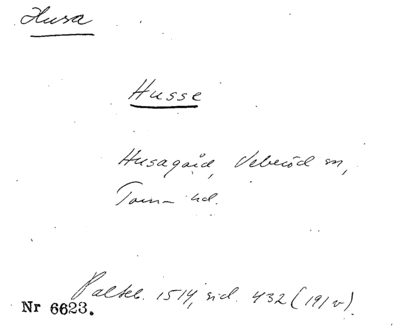 Husa
Husse
Husagård, Veberöd sn,
Torna hd.
Palteb. 1514, sid. 432 (191 v).
Nr 6623.